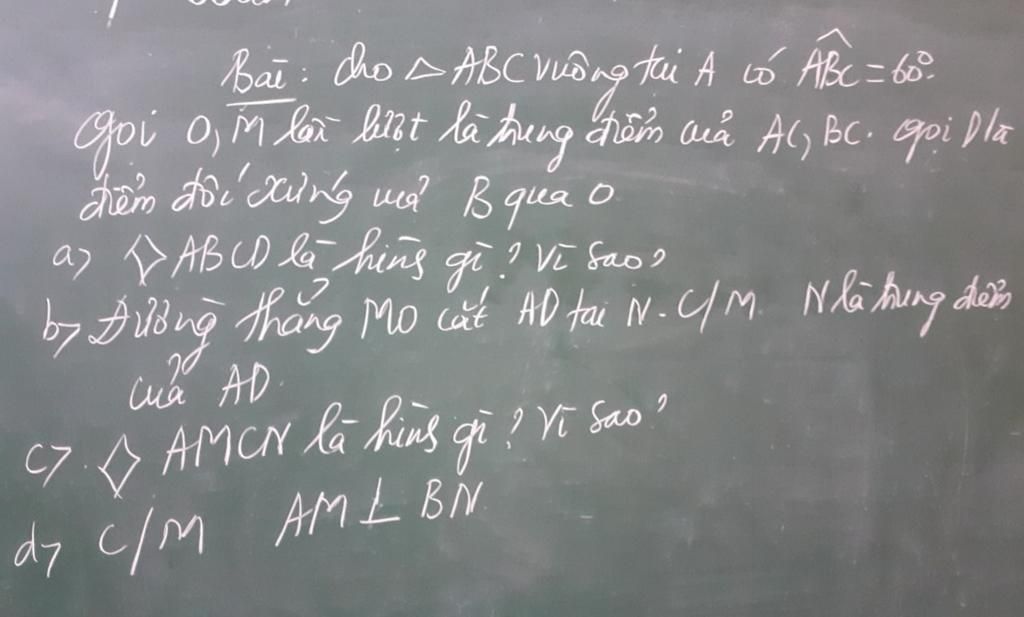 Bài: cho △ ABC vuông tại A có ABC = 60°.
Gọi O, M lần lượt là trung điểm của AC, BC. Gọi D là
điểm đối xứng của B qua O
a) ◇ ABCD là hình gì? Vì sao?
b) Đường thẳng MO cắt AD tại N. C/M N là trung điểm
của AD.
c) ◇ AMCN là hình gì? Vì sao?
d) C/M AM ⊥ BN